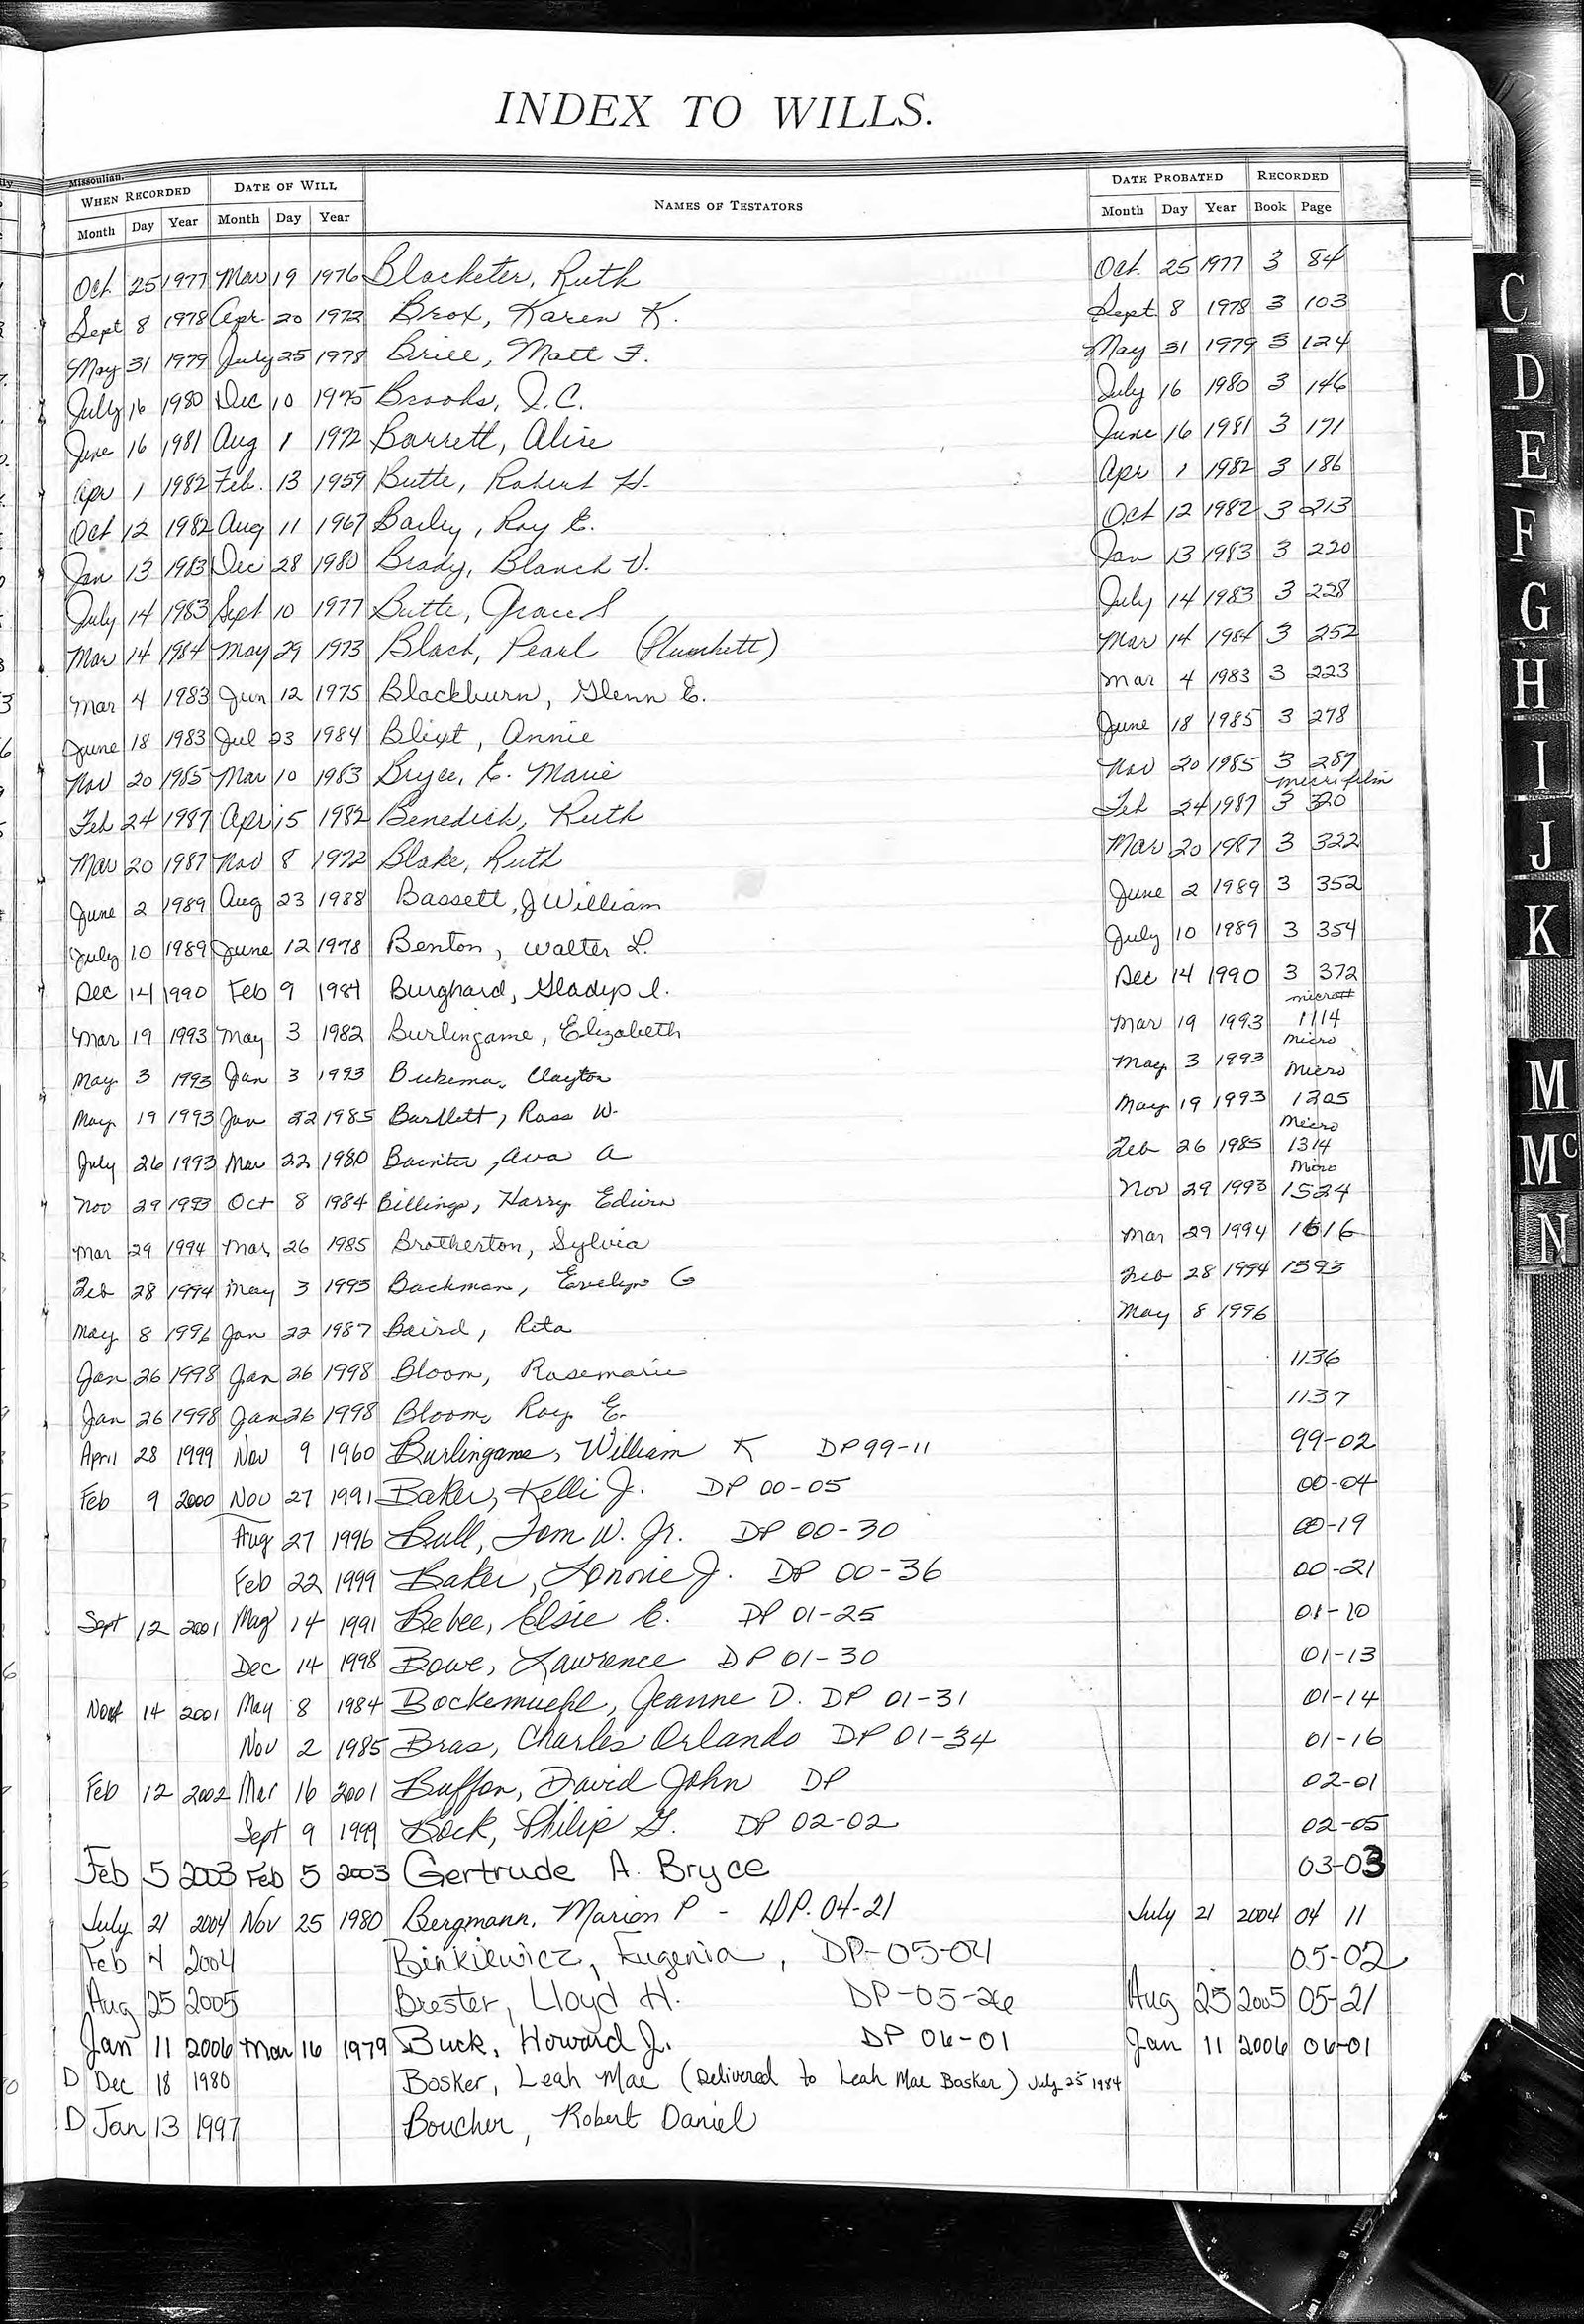 INDEX TO WILLS.
Missoulian.
WHEN RECORDED DATE OF WILL NAMES OF TESTATORS DATE PROBATED RECORDED
Month Day Year Month Day Year Month Day Year Book Page
Oct. 25 1977 Mar 19 1976 Blacketer, Ruth Oct. 25 1977 3 84
Sept 8 1978 Apr 20 1972 Brox, Karen K. Sept 8 1978 3 103
May 31 1979 July 25 1978 Brill, Matt F. May 31 1979 3 124
July 16 1980 Dec 10 1975 Brooks, I.C. July 16 1980 3 146
June 16 1981 Aug 1 1972 Barrett, Alice June 16 1981 3 171
Apr 1 1982 Feb. 13 1959 Butte, Robert H. Apr 1 1982 3 186
Oct 12 1982 Aug 11 1967 Bailey, Roy E. Oct 12 1982 3 213
Jan 13 1983 Dec 28 1980 Brady, Blanch V. Jan 13 1983 3 220
July 14 1983 Sept 10 1977 Butte, Grace S July 14 1983 3 228
Mar 14 1984 May 29 1973 Black, Pearl (Plunkett) Mar 14 1984 3 252
Mar 4 1983 Jun 12 1975 Blackburn, Glenn E. Mar 4 1983 3 223
June 18 1983 Jul 23 1984 Blixt, Annie June 18 1985 3 278
Nov 20 1985 Mar 10 1983 Bryce, E. Marie Nov 20 1985 3 287
microfilm
Feb 24 1987 Apr 15 1982 Benedick, Ruth Feb 24 1987 3 320
Mar 20 1987 Nov 8 1972 Blake, Ruth Mar 20 1987 3 322
June 2 1989 Aug 23 1988 Bassett, J William June 2 1989 3 352
July 10 1989 June 12 1978 Benton, Walter L. July 10 1989 3 354
Dec 14 1990 Feb 9 1984 Burghard, Gladys I. Dec 14 1990 3 372
micro
Mar 19 1993 May 3 1982 Burlingame, Elizabeth Mar 19 1993 1114
Micro
May 3 1993 Jan 3 1993 Beekema, Clayton May 3 1993
Micro
May 19 1993 Jan 22 1985 Bartlett, Ross W. May 19 1993 1205
Micro
July 26 1993 Mar 22 1980 Bainter, Ava A Feb 26 1985 1314
Micro
Nov 29 1993 Oct 8 1984 Billings, Harry Edwin Nov 29 1993 1524
Mar 29 1994 Mar 26 1985 Brotherton, Sylvia Mar 29 1994 1616
Feb 28 1994 May 3 1993 Backman, Evelyn G Feb 28 1994 1593
May 8 1996 Jan 22 1987 Baird, Rita May 8 1996
Jan 26 1998 Jan 26 1998 Bloom, Rosemarie 1136
Jan 26 1998 Jan 26 1998 Bloom, Roy E. 1137
April 28 1999 Nov 9 1960 Burlingame, William K DP 99-11 99-02
Feb 9 2000 Nov 27 1991 Baker, Kelli J. DP 00-05 00-04
Aug 27 1996 Bull, Tom W. Jr. DP 00-30 00-19
Feb 22 1999 Baker, Lonnie J. DP 00-36 00-21
Sept 12 2001 May 14 1991 Bebee, Elsie E. DP 01-25 01-10
Dec 14 1998 Bowe, Lawrence DP 01-30 01-13
Nov 14 2001 May 8 1984 Bockemuehl, Jeanne D. DP 01-31 01-14
Nov 2 1985 Bras, Charles Orlando DP 01-34 01-16
Feb 12 2002 Mar 16 2001 Buffon, David John DP 02-01
Sept 9 1999 Bock, Philip G. DP 02-02 02-05
Feb 5 2003 Feb 5 2003 Gertrude A. Bryce 03-03
July 21 2004 Nov 25 1980 Bergmann, Marion P - DP. 04-21 July 21 2004 04 11
Feb 4 2004 Binkiewicz, Eugenia, DP-05-04 05-02
Aug 25 2005 Brester, Lloyd H. DP-05-26 Aug 25 2005 05-21
Jan 11 2006 Mar 16 1979 Buck, Howard J. DP 06-01 Jan 11 2006 06-01
D Dec 18 1980 Bosker, Leah Mae (Delivered to Leah Mae Bosker) July 25 1984
D Jan 13 1997 Boucher, Robert Daniel
C
D
E
F
G
H
I
J
K
M
Mc
N